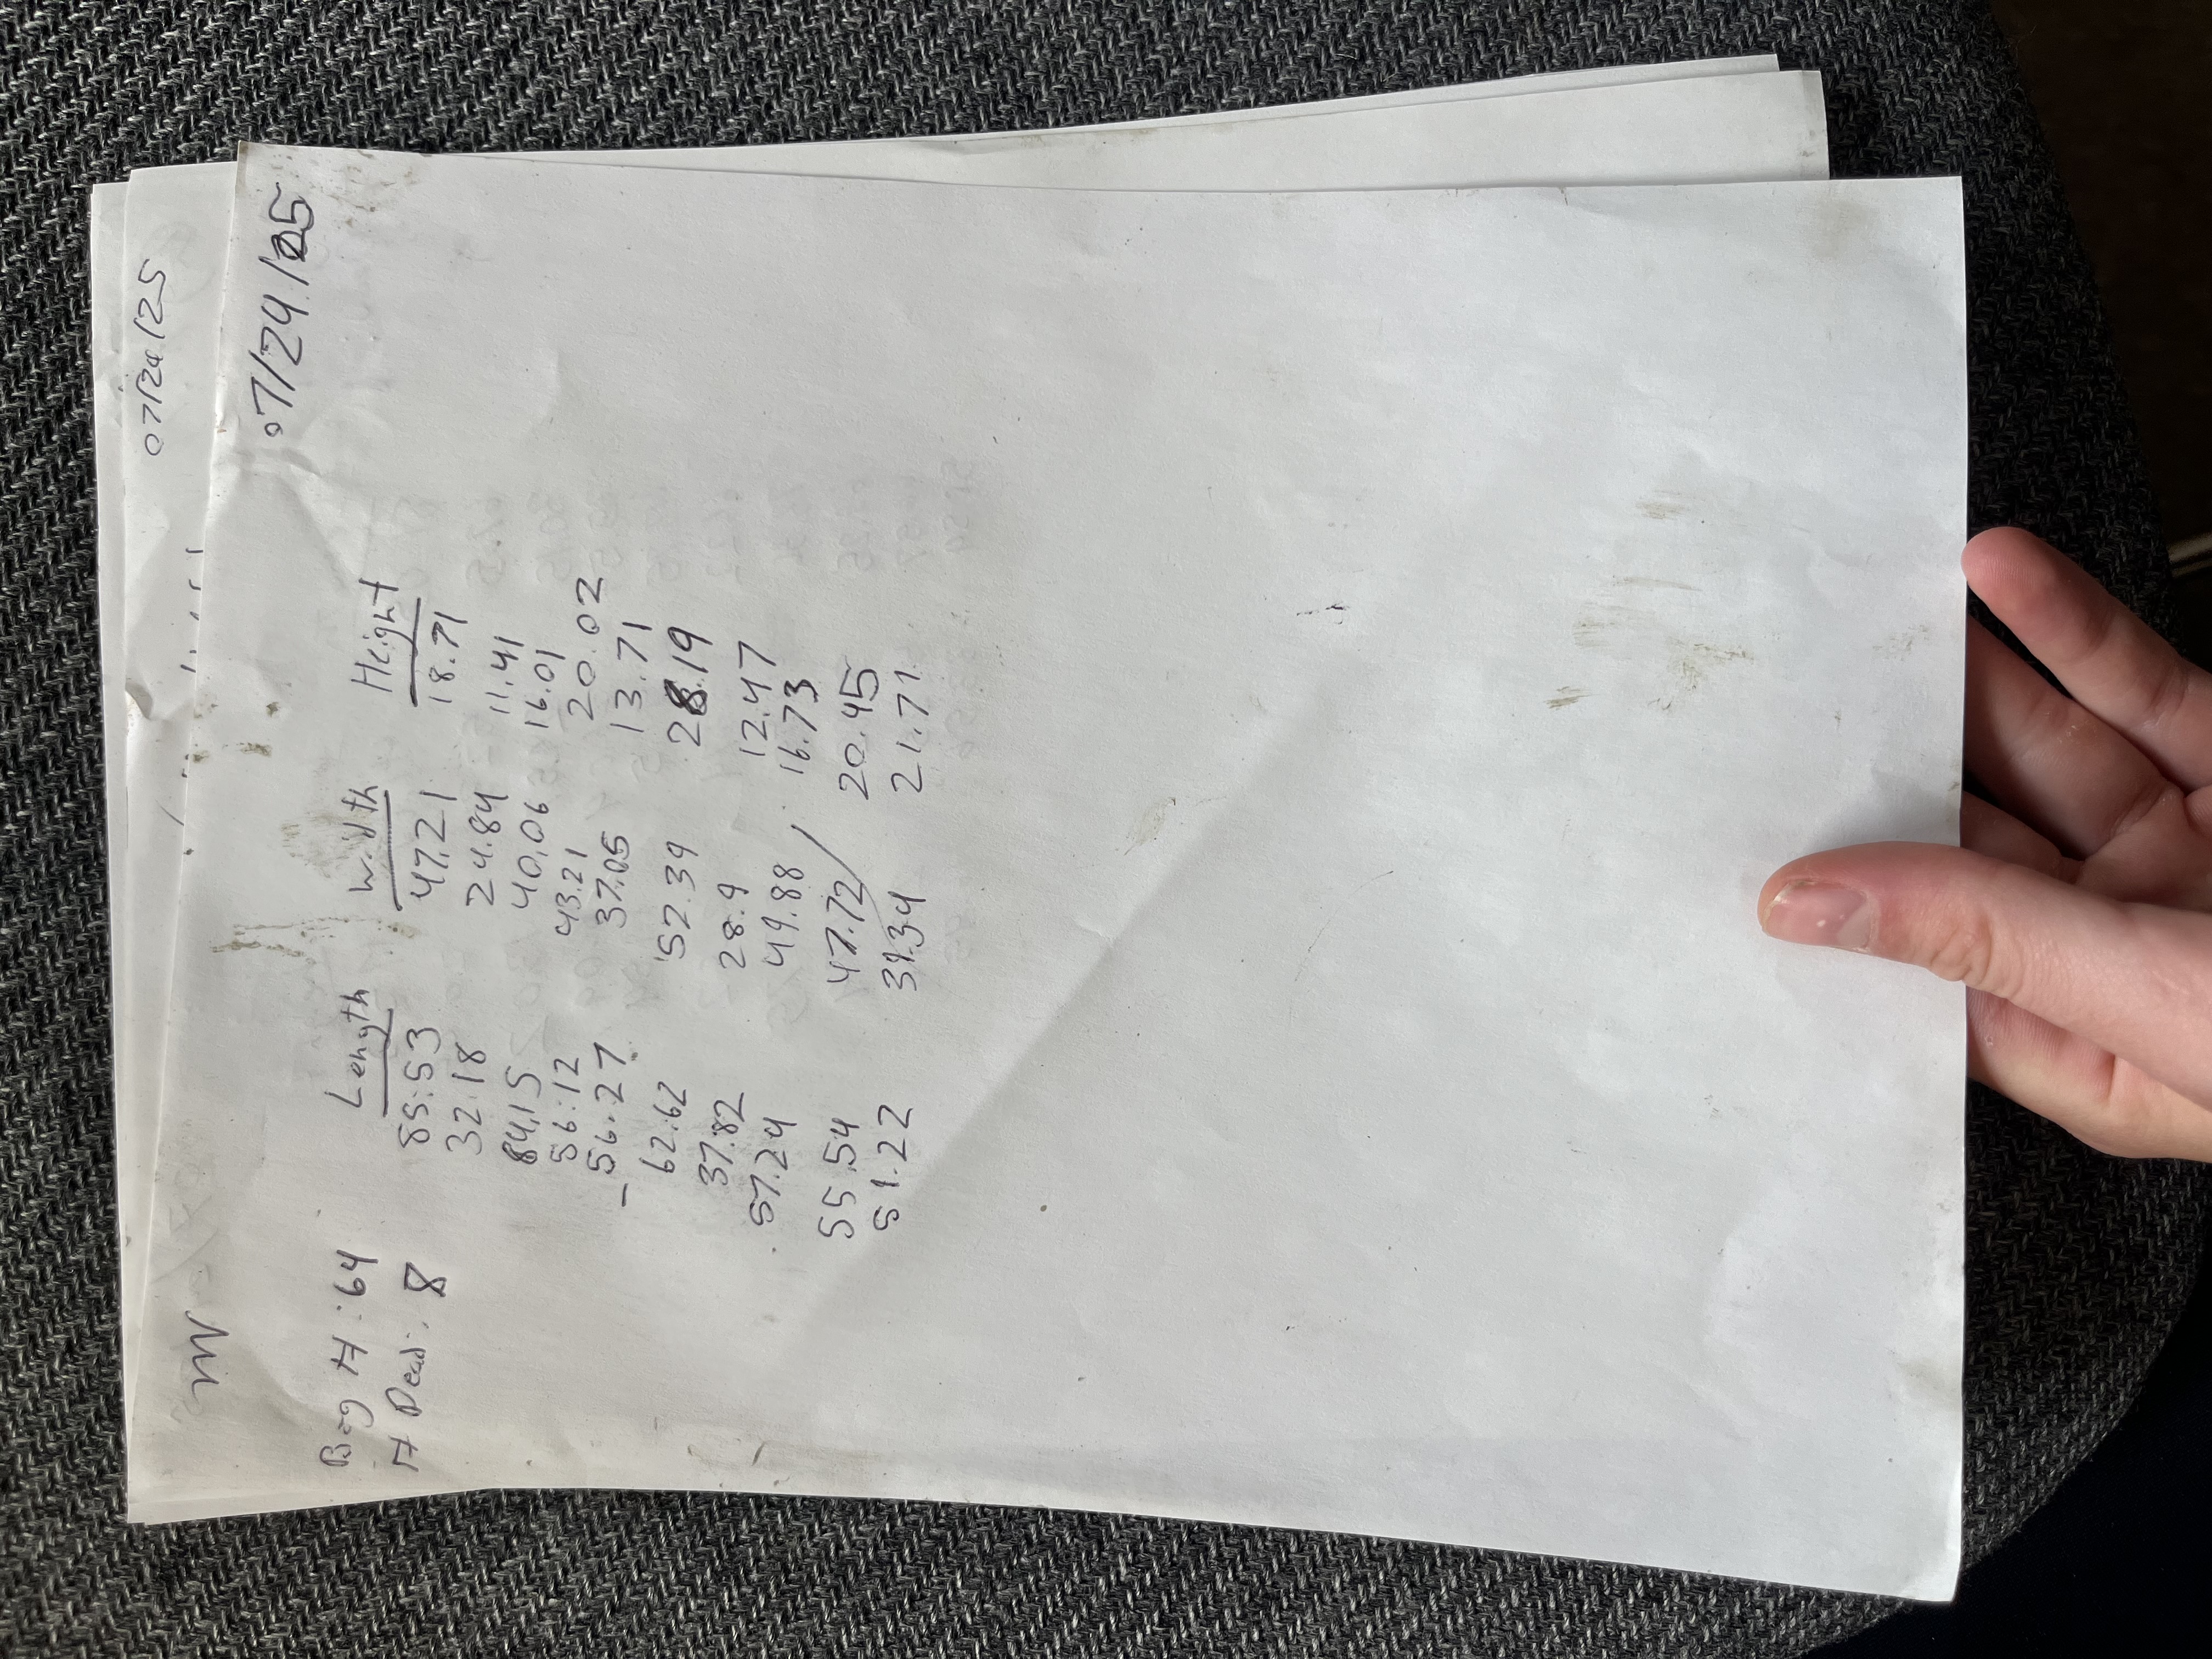 07/24/25
07/24/25
Bag #: 64 Length Width Height
# Dead: 8 85.53 47.21 18.71
32.18 24.84 11.41
84.15 40.06 16.01
56.12 43.21 20.02
56.27 37.05 13.71
62.62 52.39 28.19
37.82 28.9 12.47
57.24 49.88 16.73
55.54 47.72 20.45
51.22 39.34 21.71